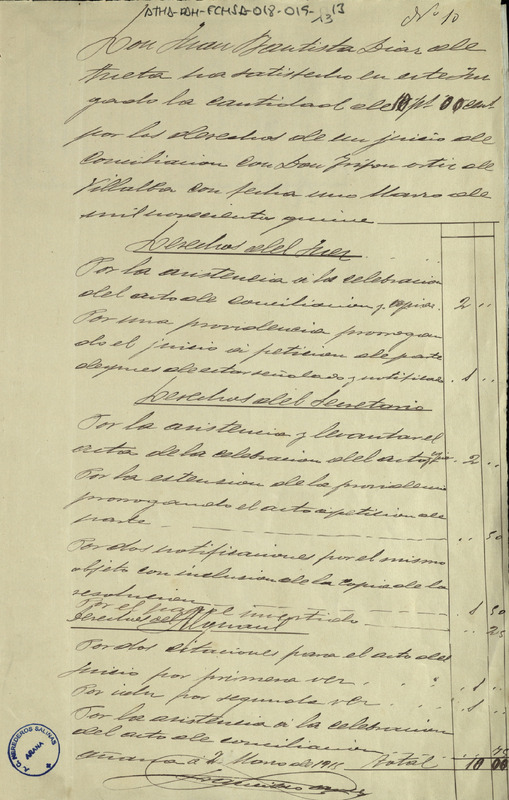 ATHA-DAH-FCMSA-018-019-13
Nº 10
Don Juan Bautista Diaz de
ha satisfecho en este Juz
gado la cantidad de 10 pts 00 cent
por los derechos de un juicio de
Conciliacion con Don Trifon Ortiz de
Villalba con fecha uno Marzo de
mil novecientos quince
Derechos del Juez
Por la asistencia a la celebracion
del acto de conciliacion y copia. 2 ..
Por una providencia prorrogan
do el juicio a peticion de parte
despues de estar señalado y notificar 1 ..
Derechos del Secretario
Por la asistencia y levantar el
acta de la celebracion del acto 2 ..
Por la estension de la providencia
prorrogando el acto a peticion de
parte .. 50
Por dos notificaciones por el mismo
objeto con inclusion de la copia de la
resolucion 1 50
Por el papel invertido .. 25
Derechos del Alguacil
Por dos citaciones para el acto del
Juicio por primera vez 1 ..
Por idem por segunda vez 1 ..
Por la asistencia a la celebracion
del acto de conciliacion 75
Añana a 2 Marzo de 1915 Total 10 00
A.C. HEREDEROS SALINAS
AÑANA